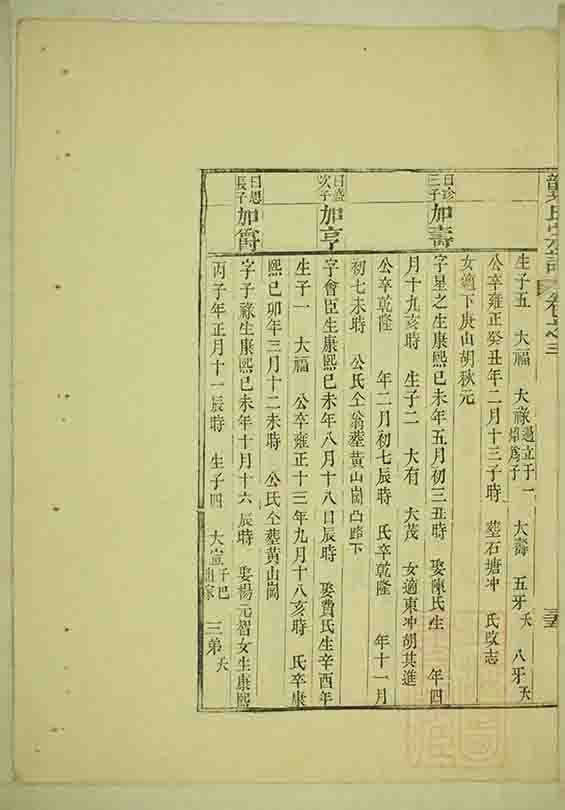 卷之三
生子五 大福 大祿過立于一㷆為子 大壽 五牙夭 八牙夭
公卒雍正癸丑年二月十三子時 塟石塘冲 氏改志
女適下庚山胡狄元
曰珍三子 加壽
字星之生康熙己未年五月初三丑時 娶陳氏生 年四
月十九亥時 生子二 大有 大茂 女適東冲胡其進
公卒乾隆 年二月初七辰時 氏卒乾隆 年十一月
初七未時 公氏仝翁塟黄山崗凸路下
曰盛次子 加亨
字會臣生康熙己未年八月十八日辰時 娶費氏生辛酉年
生子一 大福 公卒雍正十三年九月十八亥時 氏卒康
熙己卯年三月十二未時 公氏仝塟黄山崗
曰思長子 加爵
字子祿生康熙己未年十月十六辰時 娶楊元智女生康熙
丙子年正月十一辰時 生子四 大 三弟夭